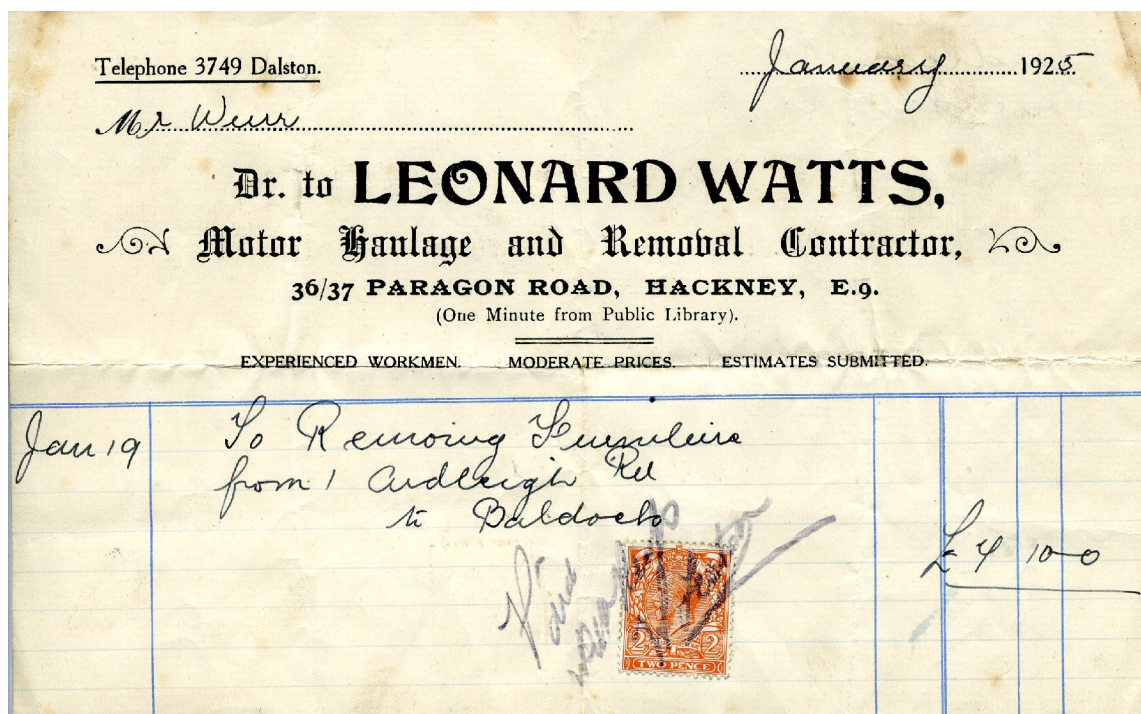 Telephone 3749 Dalston.
January 1925
Mr Weir
Dr. to LEONARD WATTS,
Motor Haulage and Removal Contractor,
36/37 PARAGON ROAD, HACKNEY, E.9.
(One Minute from Public Library).
EXPERIENCED WORKMEN. MODERATE PRICES. ESTIMATES SUBMITTED.
Jan 19 To Removing Furniture
from 1 Ardleigh Rd
to Baldock
£4 10-0
Paid
with thanks
2 2
TWO PENCE